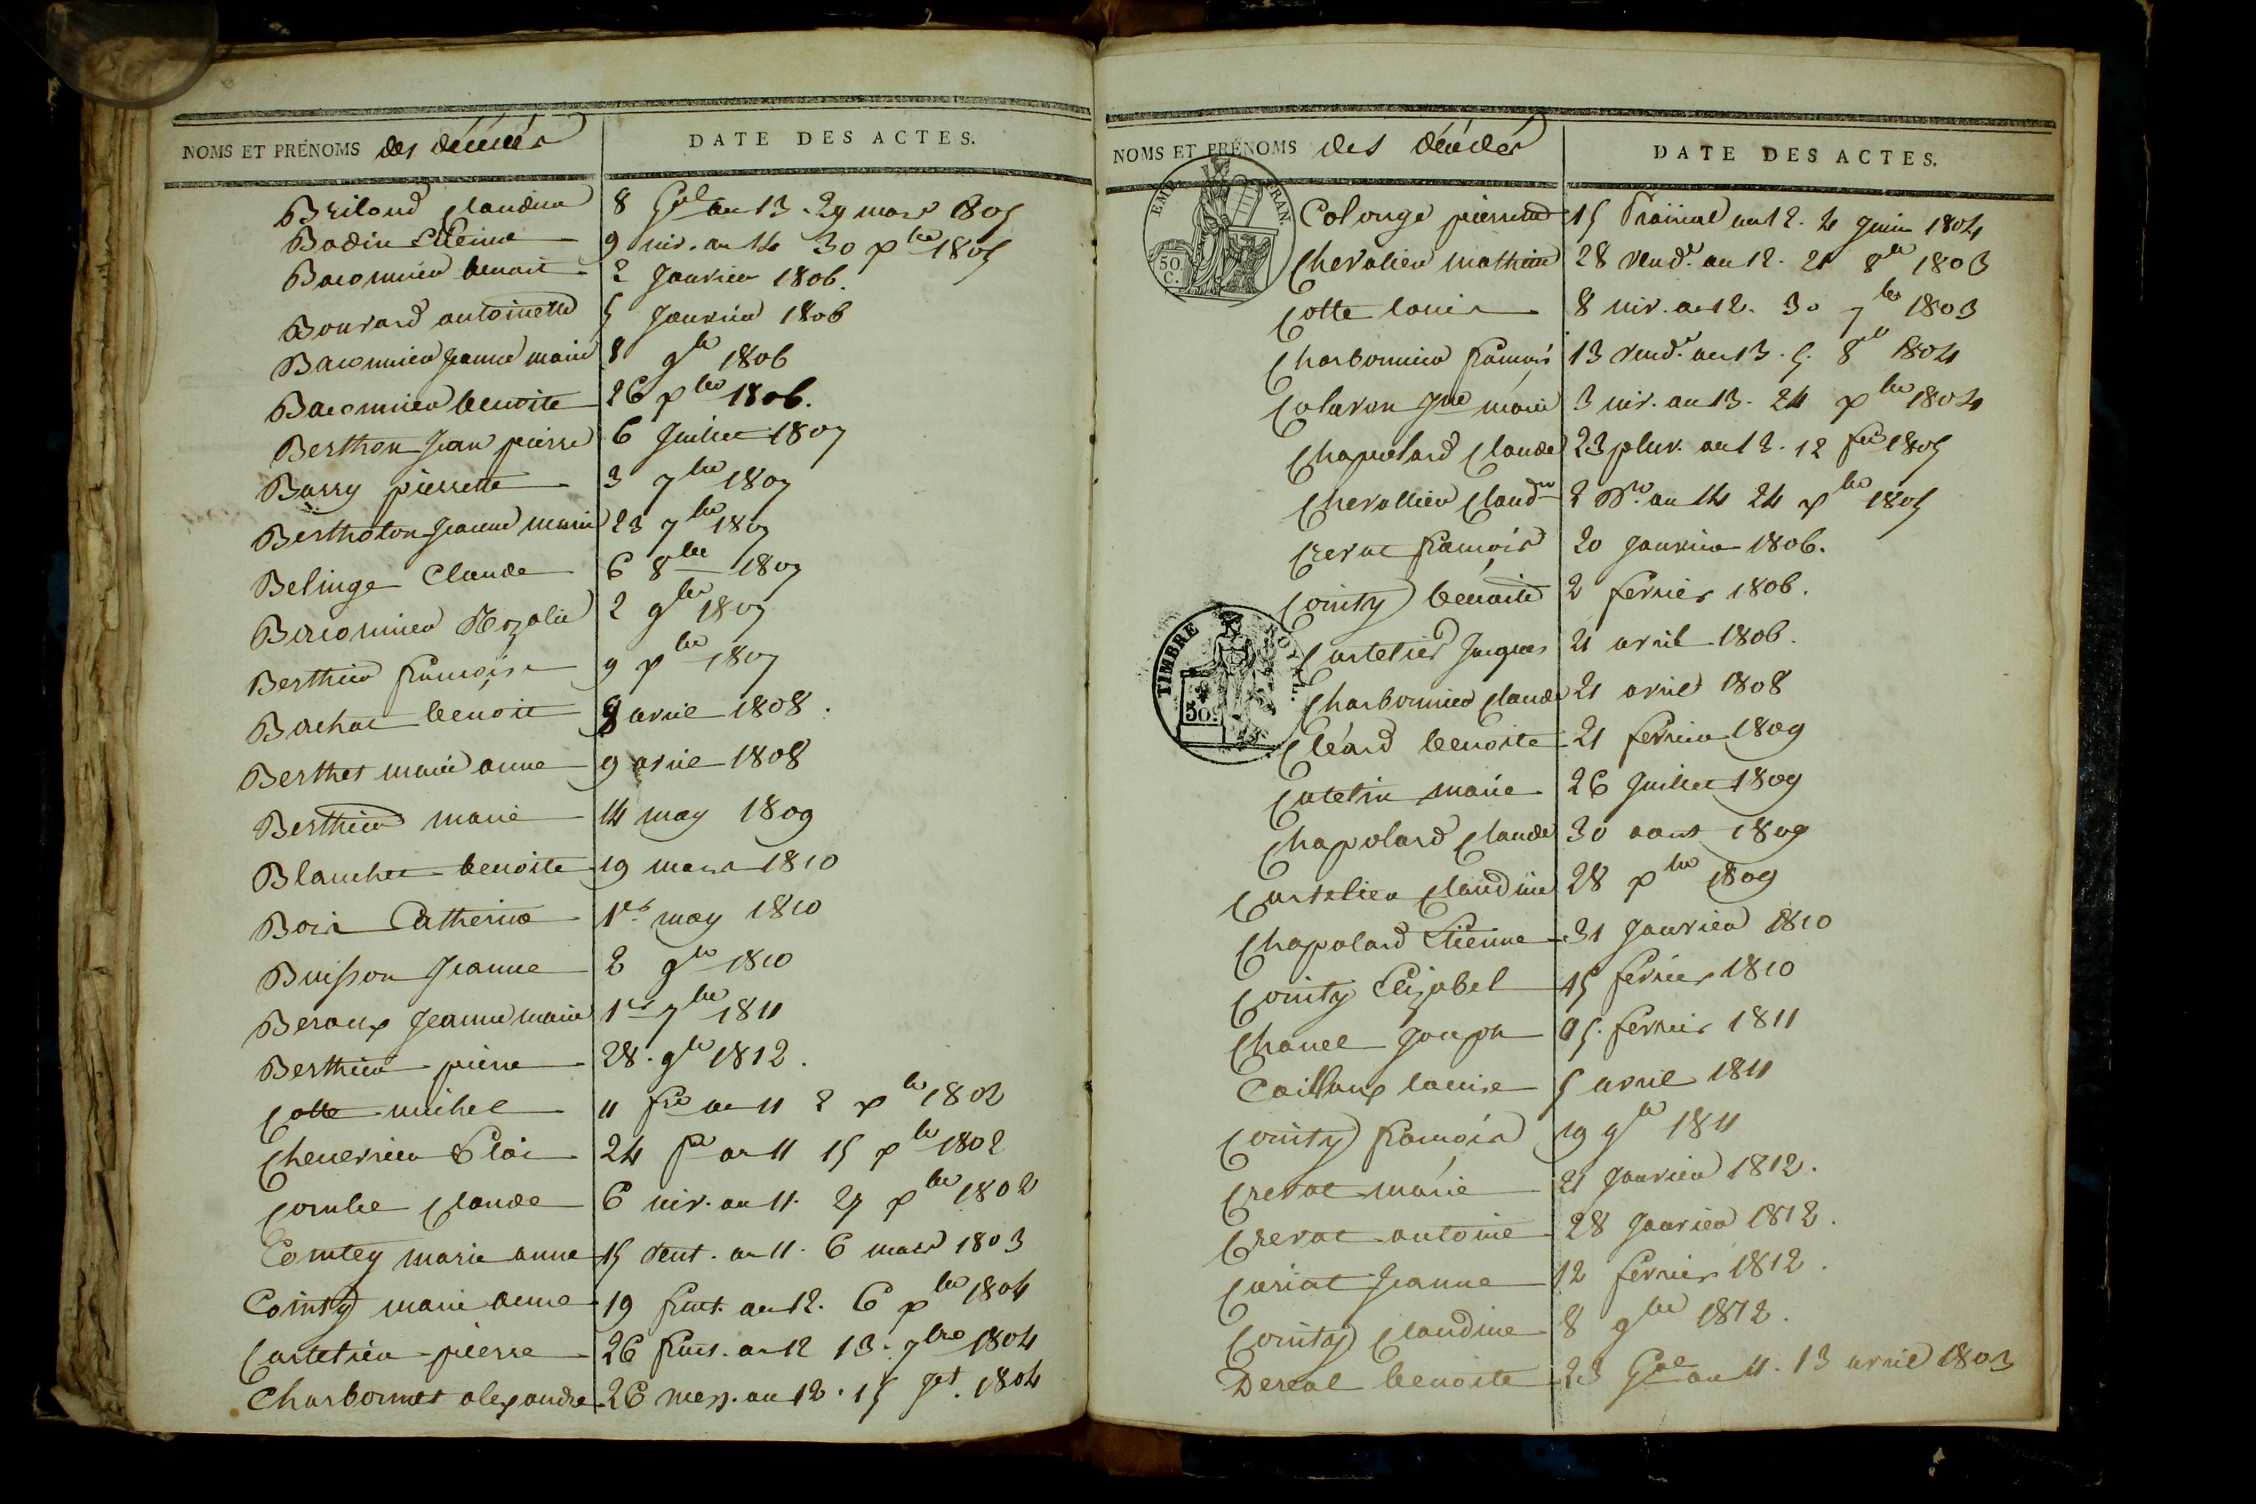 NOMS ET PRÉNOMS des décédés
DATE DES ACTES.
Briland Claudine 8 Gal an 13. 29 mars 1805
Badin Etienne 9 niv. an 14 30 xbre 1805
Baconnier benoit 2 Janvier 1806.
Bonnard antoinette 5 Janvier 1806
Baconnier Jeanne marie 8 9bre 1806
Baconnier benoite 26 xbre 1806.
Berthon Jean pierre 6 Juillet 1807
Barry pierrette 3 7bre 1807
Bertholon Jeanne marie 23 7bre 1807
Belinge Claude 6 8bre 1807
Baconnier Rozalie 2 9bre 1807
Berthier françoise 9 xbre 1807
Bachat benoit 8 avril 1808.
Berthet marie anne 9 avril 1808
Berthier marie 14 may 1809
Blanchet benoite 19 mars 1810
Bois Catherine 1er may 1810
Buisson Jeanne 2 9bre 1810
Beroux Jeanne marie 1er 7bre 1811
Berthier pierre 28. 9bre 1812.
Cotte michel 11 fre an 11 2 xbre 1802
Chenevrier Eloi 24 fre an 11 15 xbre 1802
Combe Claude 6 niv. an 11. 27 xbre 1802
Comtey marie anne 15 vent. an 11. 6 mars 1803
Cointy marie anne 19 fruct. an 12. 6 xbre 1804
Cartelier pierre 26 fruct. an 12 13. 7bre 1804
Charbonnet alexandre 26 mess. an 12. 15 Jet. 1804
NOMS ET PRÉNOMS des décédés
DATE DES ACTES.
EMP. FRAN.
50. C.
Colonge pierre 15 Prairial an 12. 4 Juin 1804
Chevalier mathieu 28 vendre. an 12. 21 8bre 1803
Cotte louis 8 niv. an 12. 30 7bre 1803
Charbonnier françois 13 vendre. an 13. 5. 8bre 1804
Colaron Jne marie 3 niv. an 13. 24 xbre 1804
Chapolard Claude 23 pluv. an 13. 12 fer 1805
Chevallier Claudne 2 Nre. an 14 24 xbre 1805
Crevat françois 20 Janvier 1806.
Cointy benoite 2 fevrier 1806.
TIMBRE ROYAL.
50.
Cartelier Jacques 21 avril 1806.
Charbonnier Claude 21 avril 1808
Cléard benoite 21 fevrier 1809
Catelin marie 26 Juillet 1809
Chapolard Claude 30 aout 1809
Cartelier Claudine 28 xbre 1809
Chapolard Etienne 31 Janvier 1810
Cointy Elizabel 15 fevrier 1810
Chanel Joseph 15. fevrier 1811
Cailloux louise 5 avril 1811
Cointy françois 19 9bre 1811
Crevat marie 21 Janvier 1812.
Crevat antoine 28 Janvier 1812.
Curiat Jeanne 12 fevrier 1812.
Cointy Claudine 8 9bre 1812.
Dereal benoite 23 Gal an 11. 13 avril 1803